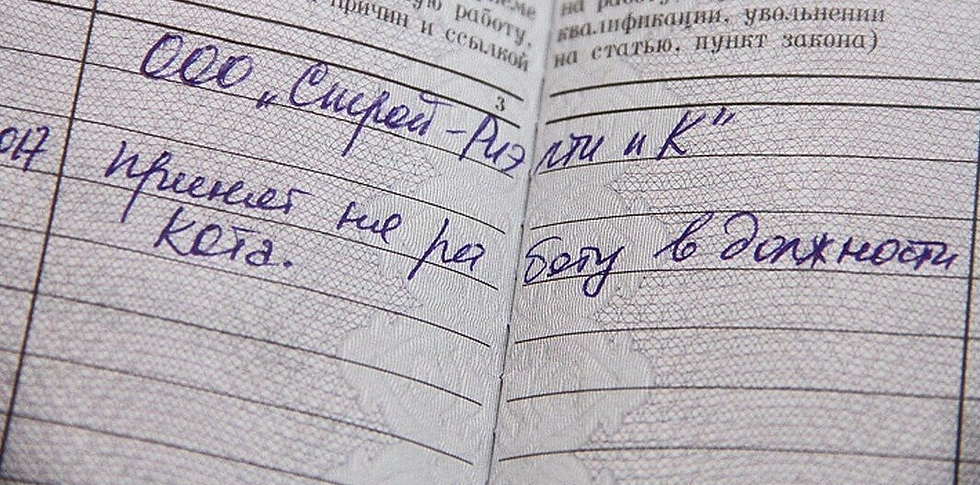 ую работу,
причин и ссылкой
квалификации, увольнении
на статью, пункт закона)
3
ООО „Строй-Риэлти и К"
017
принят на работу в должности
кота.